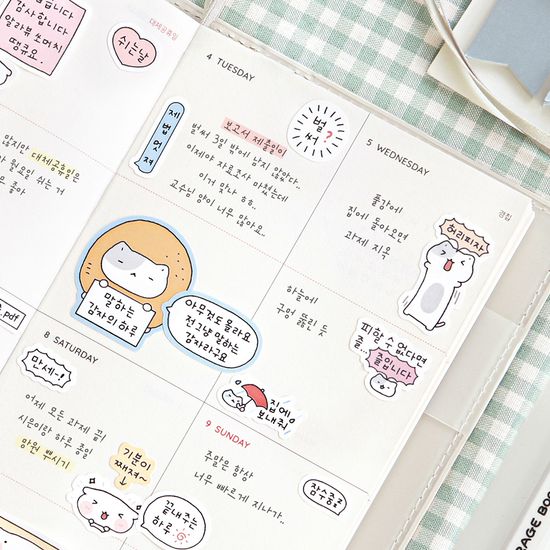 니다
감사합니다
알라뷰 쏘머치
땡큐요
쉬는날
대체공휴일
많지만 대체공휴일은
월요일 쉬는 거
좋아
.pdf
4 TUESDAY
제법 멋져
벌써?
보고서 제출일이
벌써 3일 밖에 남지 않았다..
이제야 자료조사 마쳤는데
이거 맞나 ㅎㅎ.
교수님 양이 너무 많아요..
말하는
감자의 하루
아무것도 몰라요
전 그냥 말하는
감자라구요
5 WEDNESDAY
경칩
쫄깡에
집에 돌아오면
과제 지옥
허리피자
하늘에
구멍 뚫린 듯
피할 수 없다면
즐..
졸입니다
집에
보내줘!
8 SATURDAY
만세~!
어제 모든 과제 끝!
시은이랑 하루 종일
망원 뿌시기
기분이
째져~
끝내주는
하루
9 SUNDAY
주말은 항상
너무 빠르게 지나가..
잠수종료
RAGE BOO